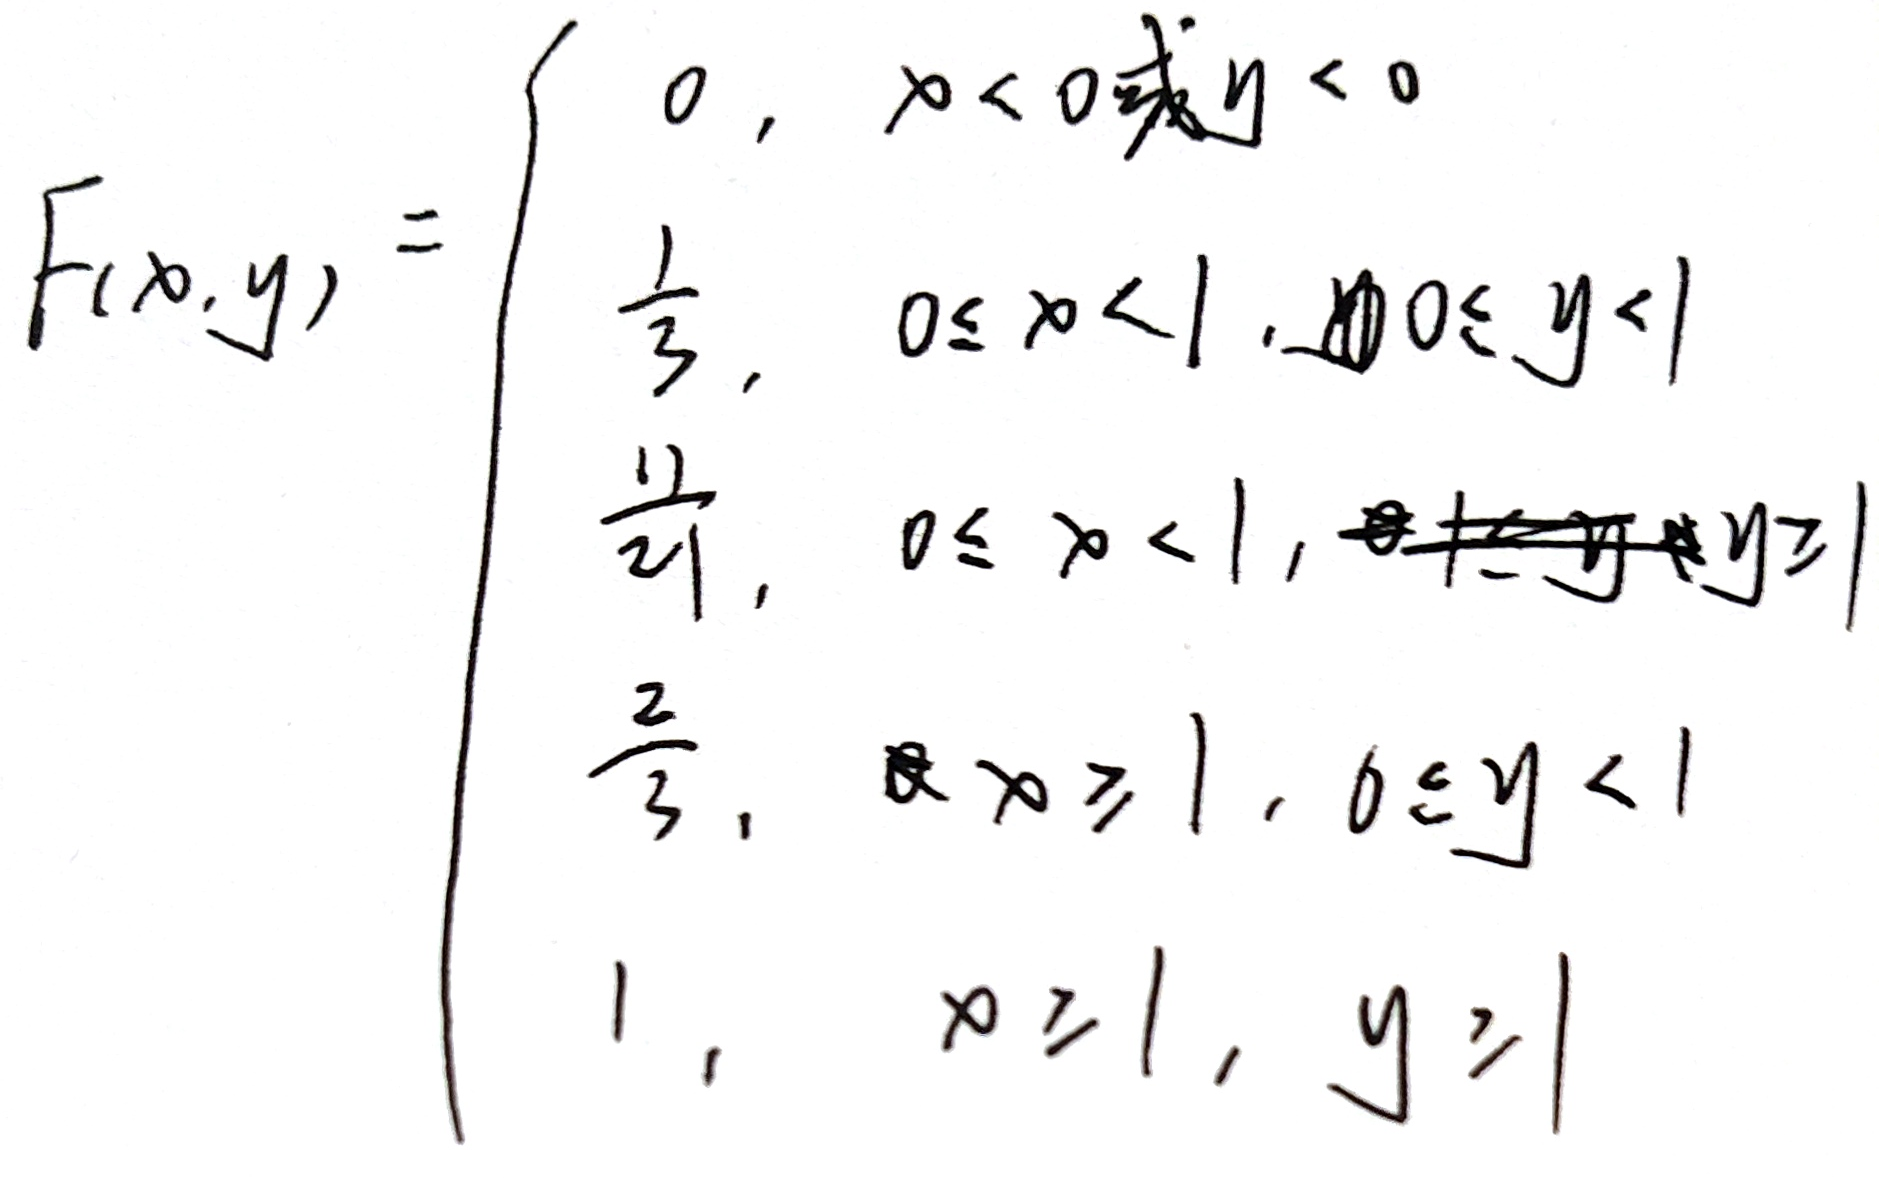 F(x,y) = { 0, x<0或y<0
1/3, 0≤x<1, 0≤y<1
11/21, 0≤x<1, y≥1
2/3, x≥1, 0≤y<1
1, x≥1, y≥1